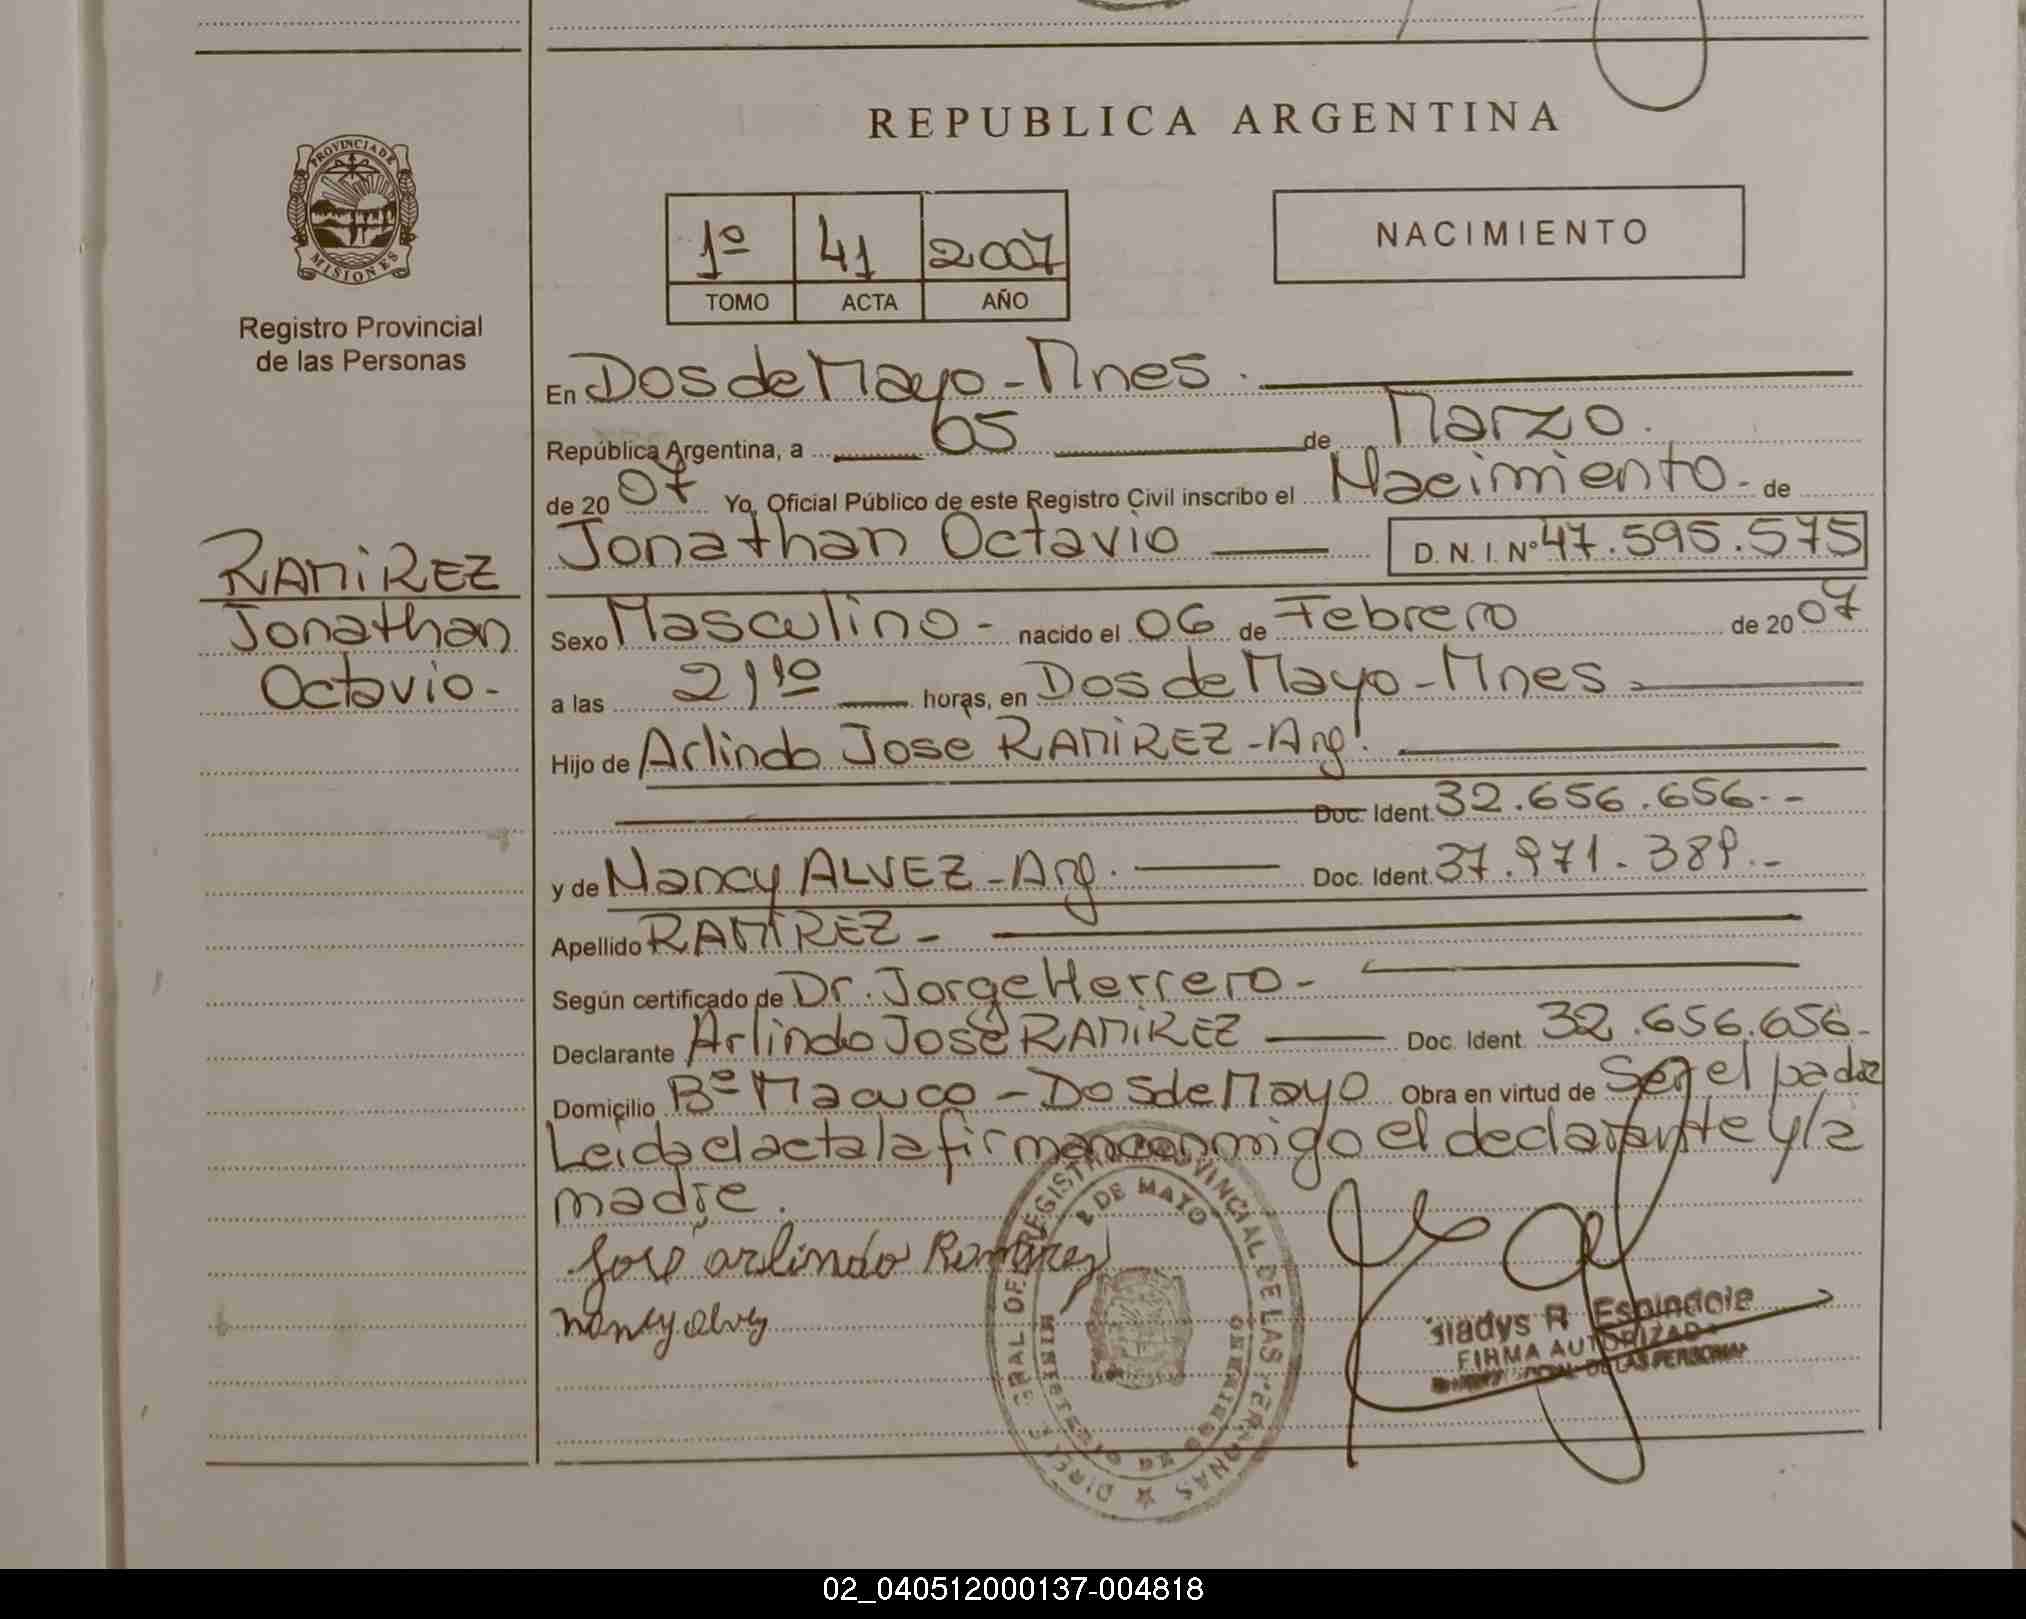 REPUBLICA ARGENTINA
PROVINCIA DE MISIONES
Registro Provincial
de las Personas
1º 41 2007
TOMO ACTA AÑO
NACIMIENTO
RAMIREZ
Jonathan
Octavio-
En Dos de Mayo-Mnes.
República Argentina, a 05 de Marzo.
de 2007 Yo, Oficial Público de este Registro Civil inscribo el Nacimiento- de
Jonathan Octavio D. N. I. Nº 47.595.575
Sexo Masculino- nacido el 06 de Febrero de 2007
a las 21,10 horas, en Dos de Mayo-Mnes-
Hijo de Arlindo Jose RAMIREZ-Arg.
Doc. Ident. 32.656.656--
y de Nancy ALVEZ-Arg. Doc. Ident. 37.971.389.-
Apellido RAMIREZ-
Según certificado de Dr. Jorge Herrero-
Declarante Arlindo José RAMIREZ Doc. Ident. 32.656.656-
Domicilio Bº Macuco-Dos de Mayo Obra en virtud de Ser el padre
Leida el acta la firman conmigo el declarante y la
madre.
José arlindo Ramirez
nancy alvez
DIRECC GRAL DE REGISTRO PROVINCIAL DE LAS PERSONAS
2 DE MAYO
MINISTERIO DE GOBIERNO
Gladys R. Espindola
FIRMA AUTORIZADA
DE LAS PERSONAS
02_040512000137-004818